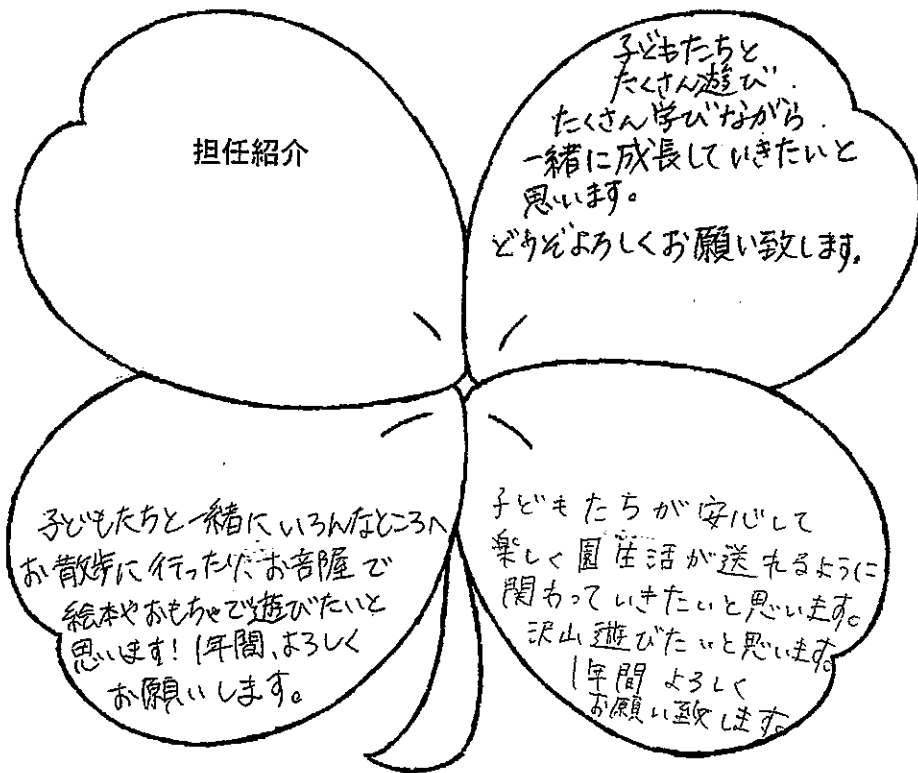 担任紹介
子どもたちと
たくさん遊び
たくさん学びながら
一緒に成長していきたいと
思います。
どうぞよろしくお願い致します。
子どもたちと一緒にいろんなところへ
お散歩に行ったり、お部屋で
絵本やおもちゃで遊びたいと
思います！1年間、よろしく
お願いします。
子どもたちが安心して
楽しく園生活が送れるように
関わっていきたいと思います。
沢山遊びたいと思います。
1年間よろしく
お願い致します。